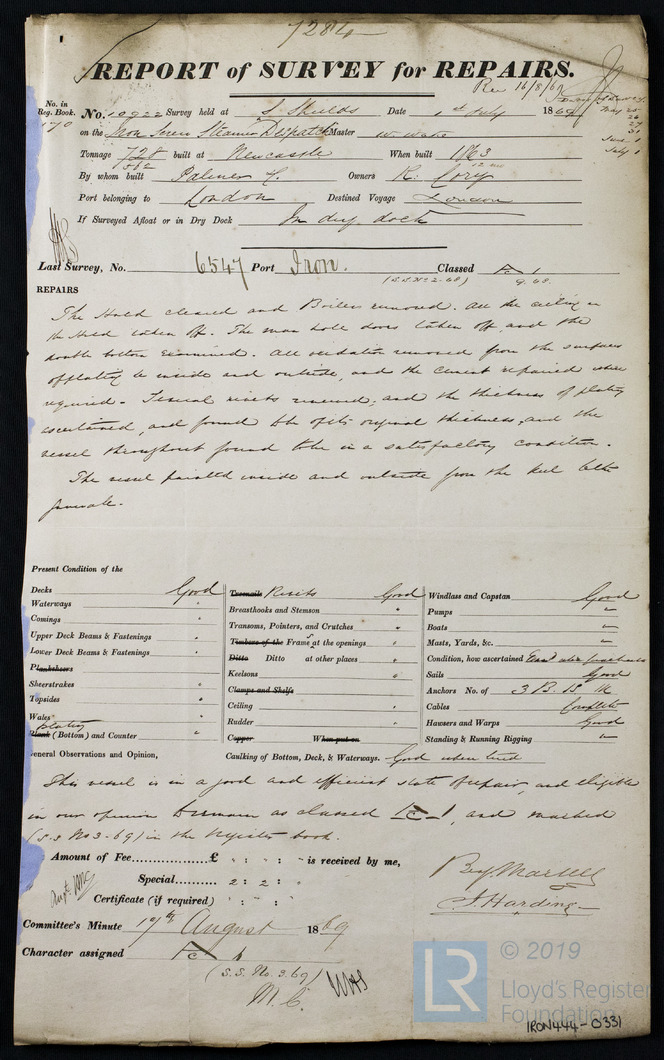 7284
REPORT of SURVEY for REPAIRS.
Rec 16/8/69
No. in Reg. Book. 170
No. 10922 Survey held at S. Shields Date 1st July 1869
May 25
26
27
31
June 1
July 1
on the Iron Screw Steamer Dispatch Master W. Ware
Tonnage 728 built at Newcastle When built 1863
562
By whom built Palmer & Co. Owners R. Cory
Port belonging to London Destined Voyage London
If Surveyed Afloat or in Dry Dock In dry dock
Last Survey, No. 6547 Port Iron. Classed A 1
(S.S. No 2-68) 9.68.
REPAIRS
The Hold cleared and Boilers removed. All the ceiling in
the Hold taken off. The man hole doors taken off, and the
double bottom examined. All oxidation removed from the surfaces
of plating be inside and outside, and the cement repaired where
required. Several rivets renewed; and the thickness of plating
ascertained, and found to be of its original thickness, and the
vessel throughout found to be in a satisfactory condition.
The vessel painted inside and outside from the keel to the
gunwale.
Present Condition of the
Decks Good
Waterways "
Comings "
Upper Deck Beams & Fastenings "
Lower Deck Beams & Fastenings "
Planksheers
Sheerstrakes "
Topsides "
Wales "
plating
Plank (Bottom) and Counter "
Treenails Rivets Good
Breasthooks and Stemson "
Transoms, Pointers, and Crutches "
Timbers of the Frames at the openings "
Ditto Ditto at other places "
Keelsons "
Clamps and Shelfs
Ceiling "
Rudder "
Copper When put on
Windlass and Capstan Good
Pumps "
Boats "
Masts, Yards, &c. "
Condition, how ascertained
Sails Good
Anchors No. of 3 B. 1 S. 1 K
Cables Complete
Hawsers and Warps Good
Standing & Running Rigging "
General Observations and Opinion, Caulking of Bottom, Deck, & Waterways. Good when tried
This vessel is in a good and efficient state of repair, and eligible
in our opinion to remain as classed A 1, and marked
(S.S. No 3-69) in the register book.
Amount of Fee............... £ " : " : " is received by me,
Special.......... 2 : 2 : "
Certificate (if required) " : " : "
Benj Martell
J Harding
Committee's Minute 17th August 1869
Character assigned A 1
(S.S. No. 3.69)
M.C.
LR © 2019
Lloyd's Register
Foundation
IRON444-0331